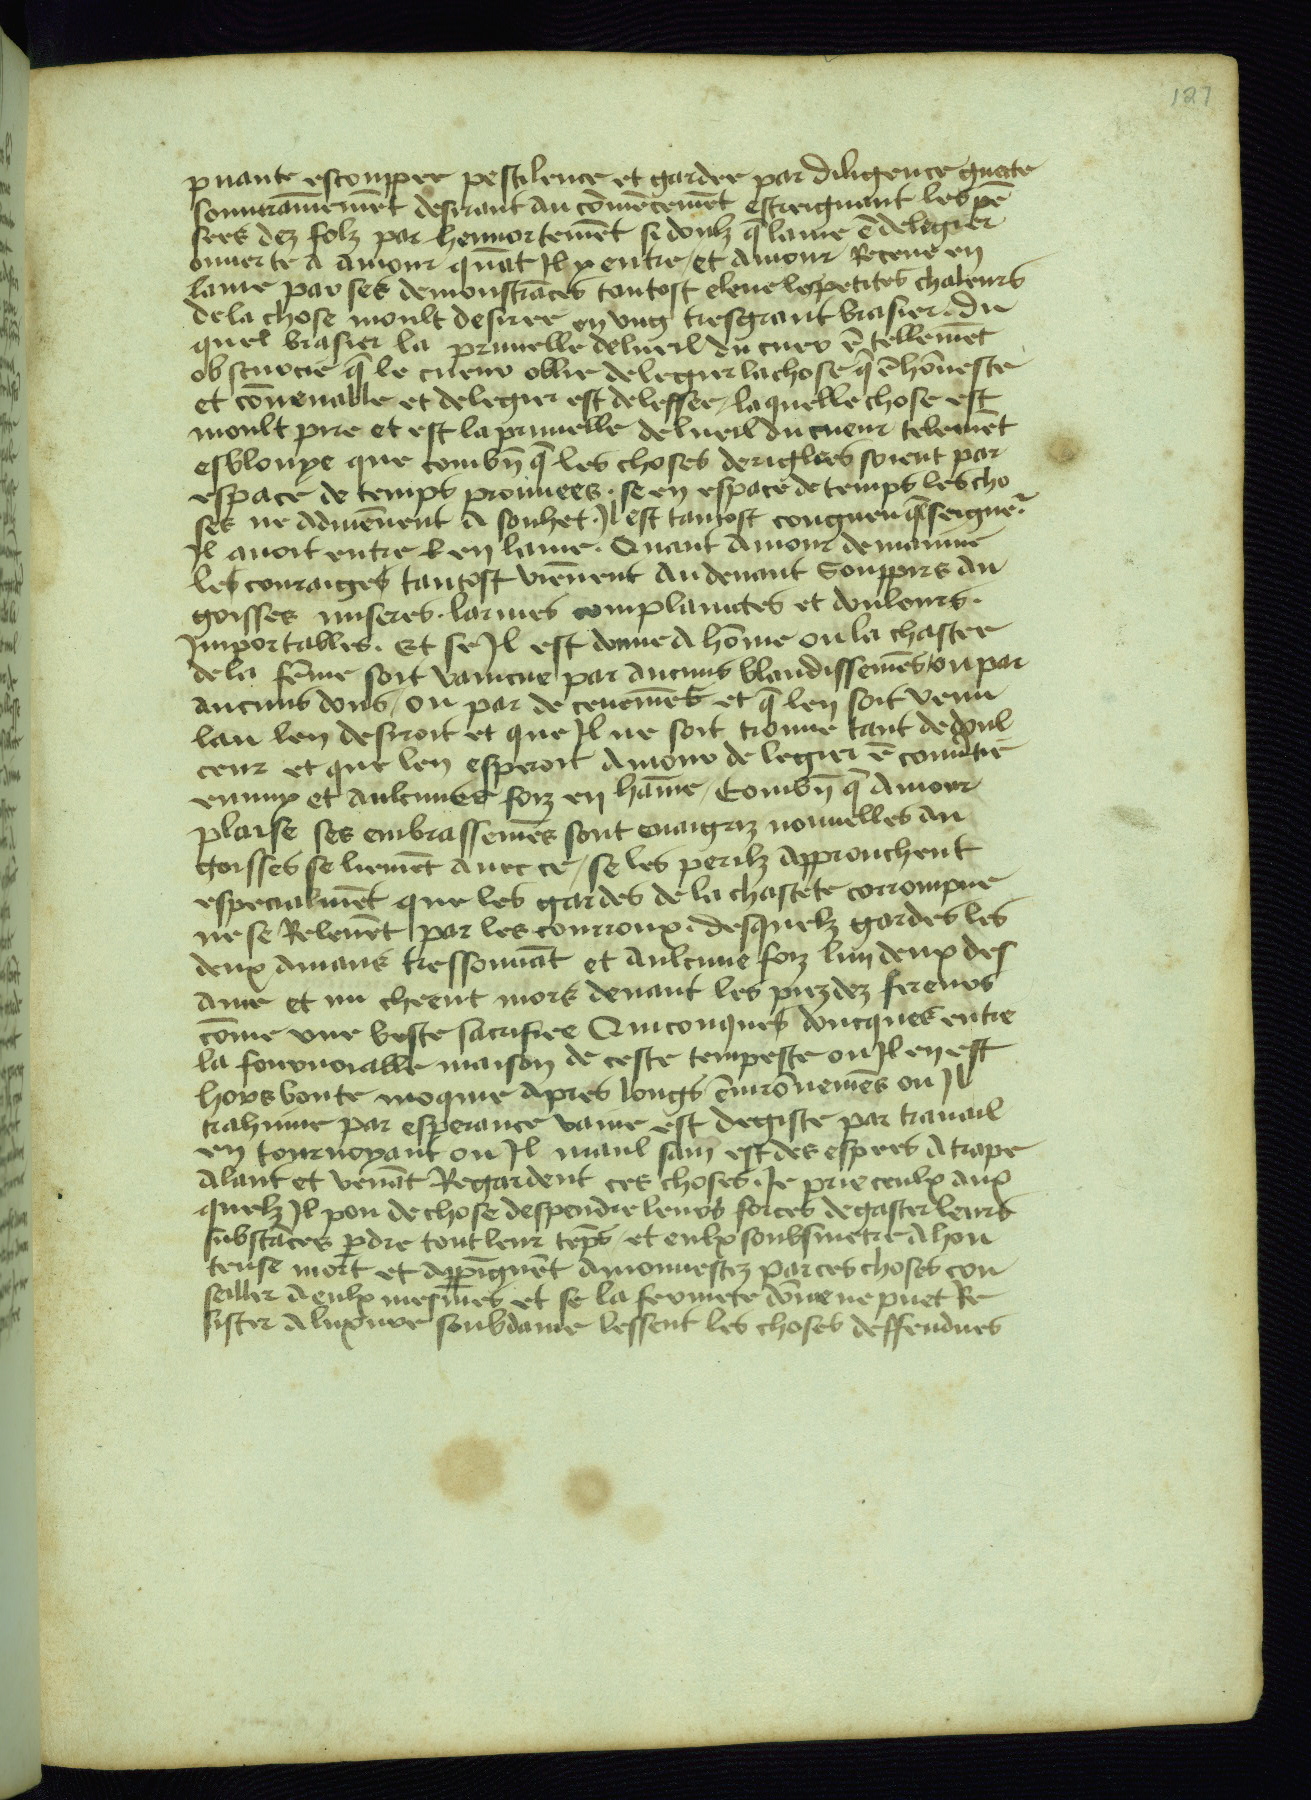 127
puante estoupee pestilence et gardee par diligence guate
souurainemēt desirant au cōmēcemēt estreignant les pē
sees dez folz par hennortemēt si doulz q̄ lame ē de legier
ouuerte a amour quāt Il y entre / et amour Receue en
lame par ses demonstrāces tantost esleue les petites chaleurs
de la chose moult desiree en vng tresgrant brasier. du
quel brasier la prunelle de lueil du cuer ē tellemēt
obscurcie q̄ le cueur oblie de legier la chose q̄ ē hōneste
et cōuenable et de legier est delessee / laquelle chose est
moult pire et est la prunelle de lueil du cueur telemēt
esblouye que combn̄ q̄ les choses deriglees soient par
espace de temps prouuees. se en espace de temps les cho
ses ne aduiēnent a souhet. Il est tantost congneu q̄l seigne.
Il auoit entre en lame. Quant amour demainne
les couraiges tantost viēnent audeuant Souppirs an
goisses miseres. larmes complaintes et douleurs.
Importables. Et se Il est donne a hōme ou la chastee
de la fēme soit vaincue par aucuns blandissemēs / ou par
aucuns dons / ou par deceuemēs et q̄ len soit venu
lau len desiroit et que Il ne soit trouue tant de doul
ceur et que len esperoit amour de legier ē conuertie
ennuy et aulcunes foiz en haīne / Combn̄ q̄ amour
plaise ses embrassemēs sont enaigriz nouuelles an
goisses se lieuent auec ce / se les perilz approuchent
especialmēt que les gardes de la chastete corrompue
ne se Releuēt par les courroux. desquelz gardes les
deux amans tressonnāt et aulcune foiz lun deux des
arme et nu cheent mors deuant les piez dez fereurs
cōme vne beste sacrifiee Quiconques doncques entre
la fouruoiable maison de ceste tempeste ou Il en est
hors boute moquie apres longs ēuirōnemēs ou Il
trahinne par esperance vaine est degiste par trauail
en tournoyant ou Il maul sain est des espees atrape
alant et venāt Regardent ces choses. Je prie ceulx aux
quelz Il pou de chose despendre leurs forces degaster leurs
substāces p̄dre tout leur tēps / et eulx soubsmetre a hon
teuse mort et appīgnēt amonnestez par ces choses con
seiller a eulx mesmes et se la fermete dōme ne puet Re
sister a luxure soubdaine lessent les choses deffendues